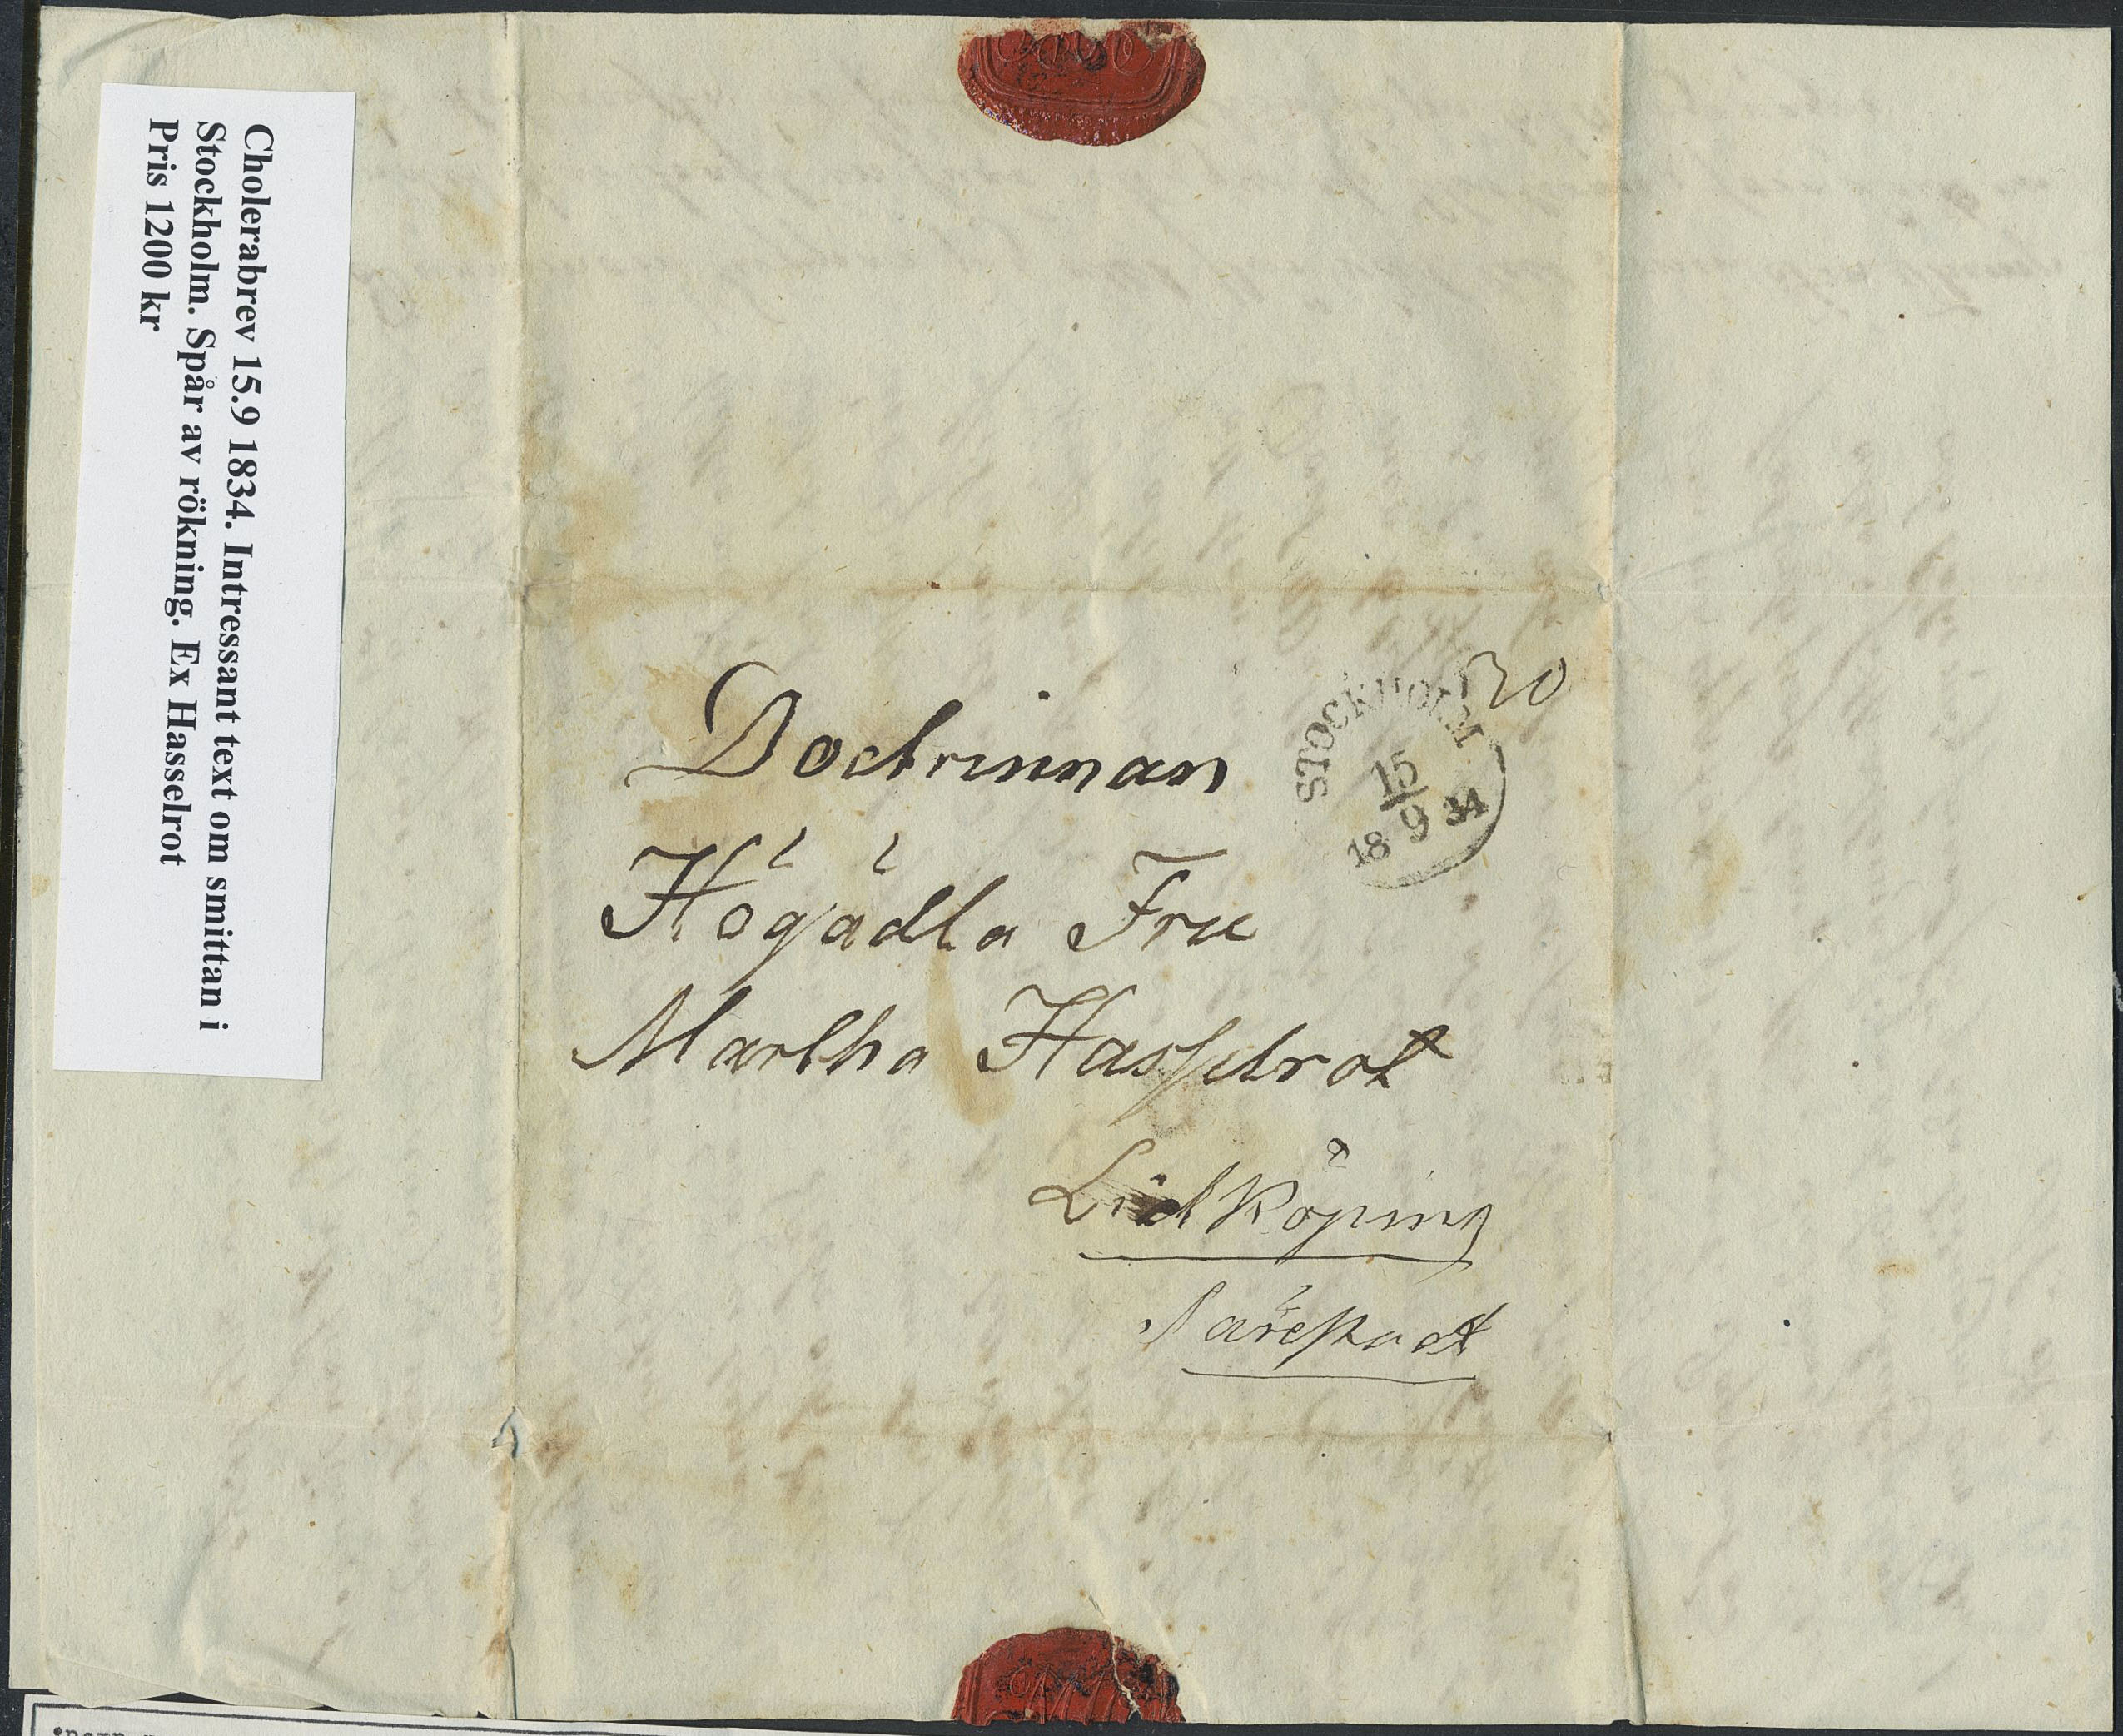 Cholerabrev 15.9 1834. Intressant text om smittan i
Stockholm. Spår av rökning. Ex Hasselrot
Pris 1200 kr
20
STOCKHOLM
15
9
1834
Doctrinnan
Högädla Fru
Martha Hasselrot
Lidköping
Särestad